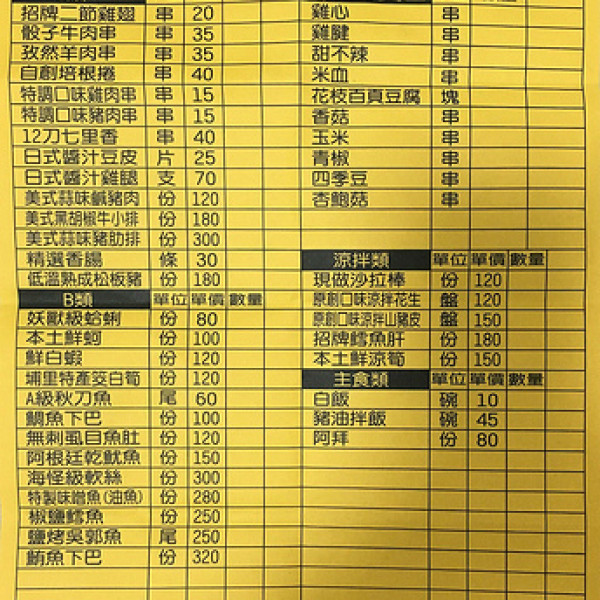 招牌二節雞翅 串 20
骰子牛肉串 串 35
孜然羊肉串 串 35
自創培根捲 串 40
特調口味雞肉串 串 15
特調口味豬肉串 串 15
12刀七里香 串 40
日式醬汁豆皮 片 25
日式醬汁雞腿 支 70
美式蒜味鹹豬肉 份 120
美式黑胡椒牛小排 份 180
美式蒜味豬肋排 份 300
精選香腸 條 30
低溫熟成松板豬 份 180
B類 單位 單價 數量
妖獸級蛤蜊 份 80
本土鮮蚵 份 100
鮮白蝦 份 120
埔里特產筊白筍 份 120
A級秋刀魚 尾 60
鯛魚下巴 份 100
無刺虱目魚肚 份 120
阿根廷乾魷魚 份 150
海怪級軟絲 份 300
特製味噌魚(油魚) 份 280
椒鹽鱈魚 份 250
鹽烤吳郭魚 尾 250
鮪魚下巴 份 320
雞心 串
雞腱 串
甜不辣 串
米血 串
花枝百頁豆腐 塊
香菇 串
玉米 串
青椒 串
四季豆 串
杏鮑菇 串
涼拌類 單位 單價 數量
現做沙拉棒 份 120
原創口味涼拌花生 盤 120
原創口味涼拌山豬皮 盤 150
招牌鱈魚肝 份 180
本土鮮涼筍 份 150
主食類 單位 單價 數量
白飯 碗 10
豬油拌飯 碗 45
阿拜 份 80